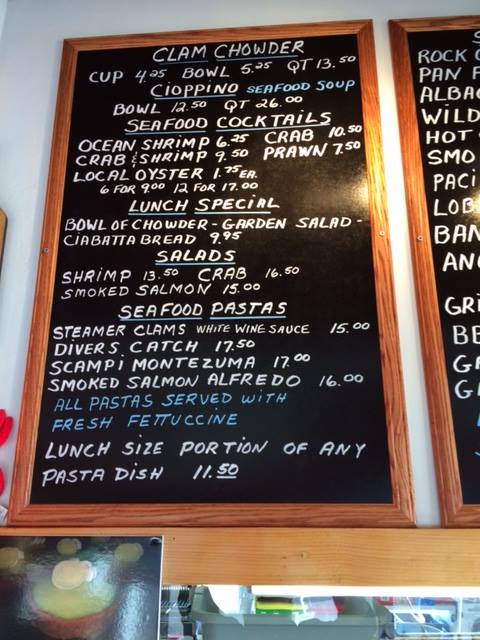 CLAM CHOWDER
CUP 4.25 BOWL 5.25 QT 13.50
CIOPPINO SEAFOOD SOUP
BOWL 12.50 QT 26.00
SEAFOOD COCKTAILS
OCEAN SHRIMP 6.25 CRAB 10.50
CRAB & SHRIMP 9.50 PRAWN 7.50
LOCAL OYSTER 1.75 EA.
6 FOR 9.00 12 FOR 17.00
LUNCH SPECIAL
BOWL OF CHOWDER - GARDEN SALAD -
CIABATTA BREAD 9.95
SALADS
SHRIMP 13.50 CRAB 16.50
SMOKED SALMON 15.00
SEAFOOD PASTAS
STEAMER CLAMS WHITE WINE SAUCE 15.00
DIVERS CATCH 17.50
SCAMPI MONTEZUMA 17.00
SMOKED SALMON ALFREDO 16.00
ALL PASTAS SERVED WITH
FRESH FETTUCCINE
LUNCH SIZE PORTION OF ANY
PASTA DISH 11.50
ROCK
PAN
ALBA
WILD
HOT
SMO
PACI
LOB
BAN
AN
GRI
BE
GA
G